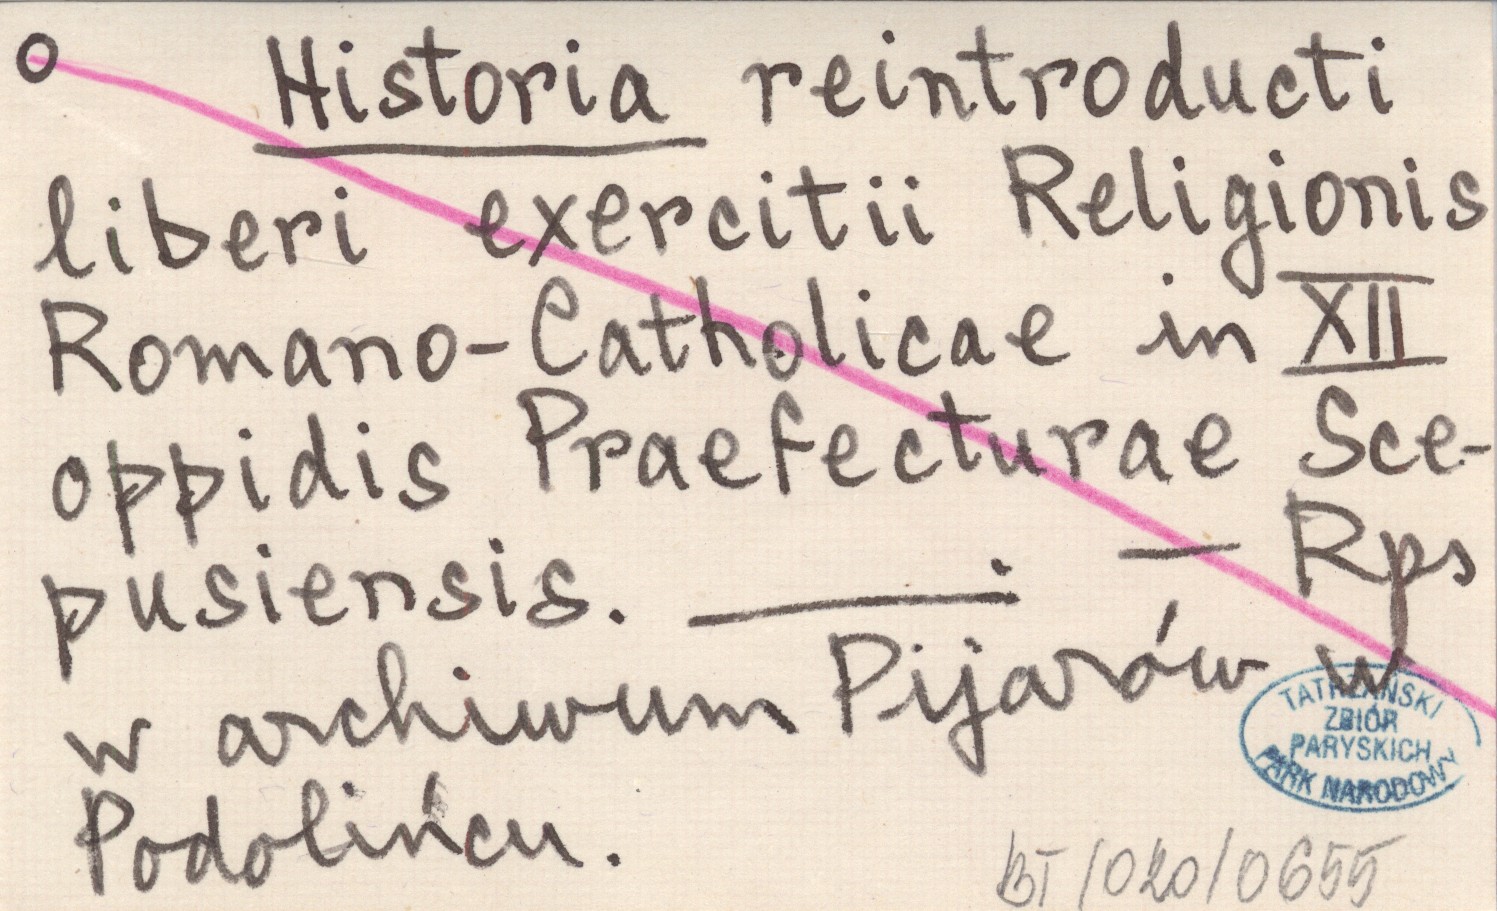 O Historia reintroducti
liberi exercitii Religionis
Romano-Catholicae in XII
oppidis Praefecturae Sce-
pusiensis. — . — Rps
w archiwum Pijarów w
Podolińcu.
TATRZAŃSKI
ZBIÓR
PARYSKICH
PARK NARODOWY
BT/020/0655